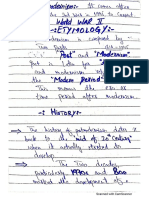 Postmodernism:- It comes after
the 2nd Week is 1946 to Current
World War II
-:ETYMOLOGY:-
Postmodernism is composed by
two Parts
"Post" and "Modernism"
Post is a Idea for after
and modernism refers to
the "Modern Period".
This means the era or
time period after modernism.
-: HISTORY:-
The history of postmodernism dates it
back to the "mid of 20th Century"
when it actually started to
develop.
The Two decades,
particularly 1990s and 800
misled the development of
Scanned with CamScanner